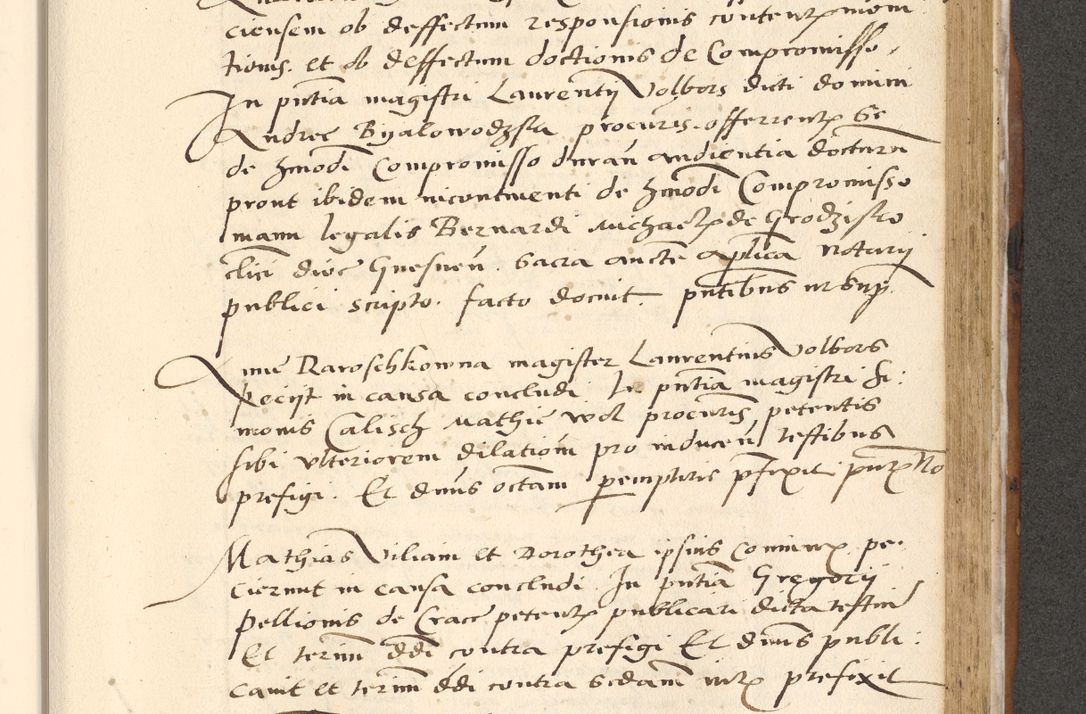 ciensem ob deffectum responsionis content
tionis. et ob deffectum doctionis de Compromisso.
In pñtia magistri Laurentij Volbors dicti domini
Andree Byalowodzska procuris. offerrent se
de hmodi Compromisso duran audientia docturu
prout ibidem incontinenti de hmodi Compromisso
manu legalis Bernardi Michael de Grodzisko
clici dioc Gnesnen. Sacra aucte aplica notarij
publici scripto. facto docuit. pñtibus
Raroschkowna magister Laurentius Volbors
peciit in causa concludi. In pñtia magistri Si:
monis Calisch Mathie procuris, petentis
sibi ulteriorem dilationem pro inducen testibus
prefigi. Et dnus octam peremptorie pfixit
Mathias Viliam et Dorothea ipsius Coniunx pe:
cierunt in causa concludi In pñtia Gregorij
Pellionis de Crac petent publicari dicta testiu
Et terim ddi contra prefigi Et dnus publi:
cavit et terim ddi contra sedam prefixit